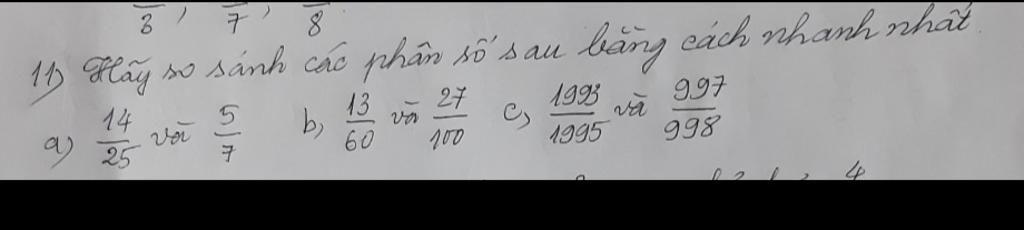 3, 7, 8
11) Hãy so sánh các phân số sau bằng cách nhanh nhất
a) 14/25 và 5/7 b, 13/60 và 27/100 c, 1993/1995 và 997/998
4